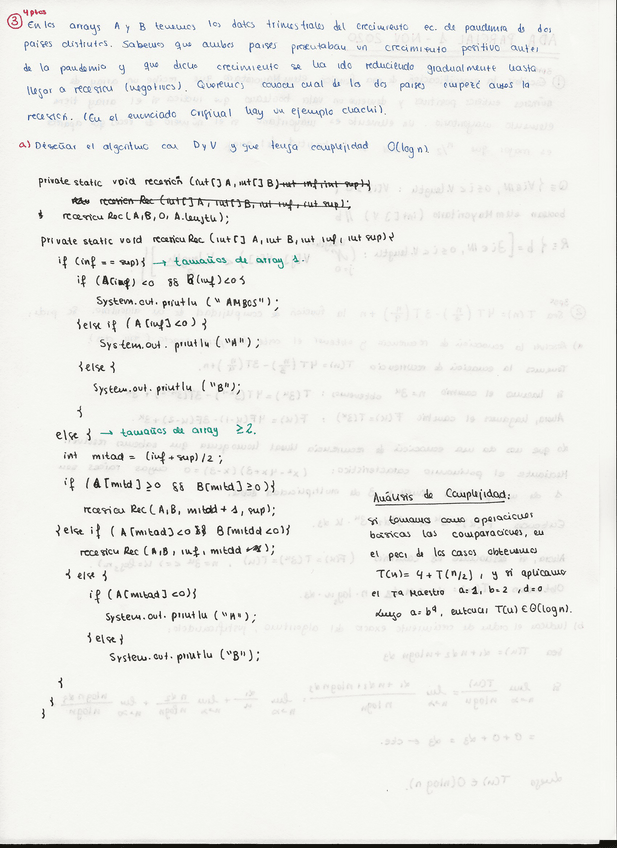 4 ptos
③ En los arrays A y B tenemos los datos trimestrales del crecimiento ec. de pandemia de dos
países distintos. Sabemos que ambos países presentaban un crecimiento positivo antes
de la pandemia y que dicho crecimiento se ha ido reduciendo gradualmente hasta
llegar a recesión (negativos). Queremos conocer cual de los dos países empezó antes la
recesión. (En el enunciado original hay un ejemplo chachi).
a) Diseñar el algoritmo con DyV y que tenga complejidad O(log n)
private static void recesión (int[] A, int[] B) int inf, int sup){
recesion Rec (int[] A, int[] B, int inf, int sup);
recesion Rec (A, B, 0, A.length);
private static void recesion Rec (int[] A, int B, int inf, int sup){
if (inf == sup){ → tamaños de array 1.
if (A[inf] <0 && B(inf) <0{
System.out.println (" AMBOS");
}else if (A[inf]<0) {
System.out.println ("A");
}else{
System.out.println ("B");
}
else { → tamaños de array ≥2.
int mitad = (inf + sup)/2;
if (A[mitd] ≥0 && B[mitd] ≥0){
recesion Rec (A, B, mitdd + 1, sup);
}else if (A[mitad]<0 && B[mitdd <0){
recesion Rec (A, B, inf, mitdd);
} else {
if (A[mitad] <0){
System.out.println ("A");
}else{
System.out.println ("B");
}
}
}
Análisis de Complejidad:
Si tomamos como operaciones
básicas las comparaciones, en
el peor de los casos obtenemos
T(n) = 4 + T(n/2), y si aplicamos
el Tª Maestro a=1, b=2, d=0
luego a=bᵈ, entonces T(n) ∈ Θ(log n).